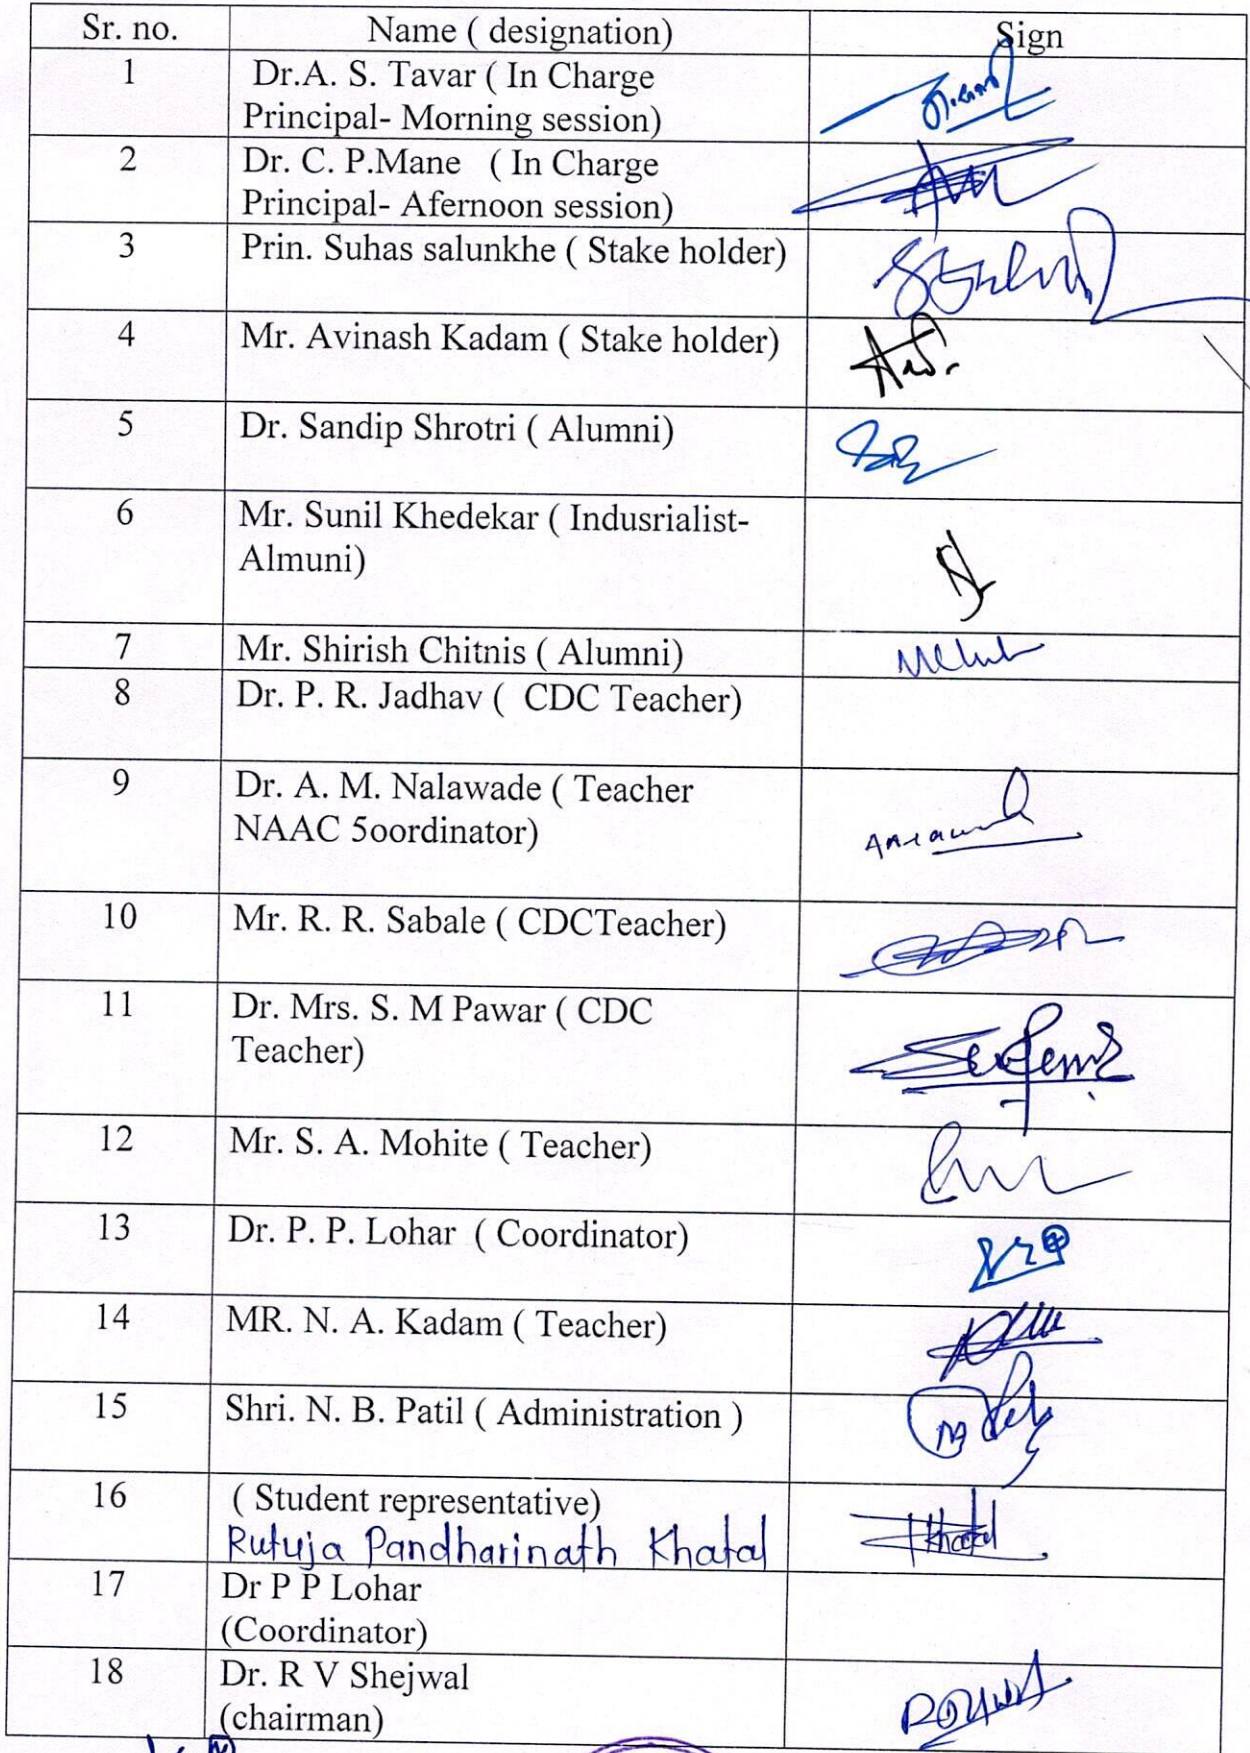 Sr. no. Name ( designation) Sign
1 Dr.A. S. Tavar ( In Charge
Principal- Morning session)
2 Dr. C. P.Mane ( In Charge
Principal- Afernoon session)
3 Prin. Suhas salunkhe ( Stake holder)
4 Mr. Avinash Kadam ( Stake holder)
5 Dr. Sandip Shrotri ( Alumni)
6 Mr. Sunil Khedekar ( Indusrialist-
Almuni)
7 Mr. Shirish Chitnis ( Alumni)
8 Dr. P. R. Jadhav ( CDC Teacher)
9 Dr. A. M. Nalawade ( Teacher
NAAC 5oordinator)
10 Mr. R. R. Sabale ( CDCTeacher)
11 Dr. Mrs. S. M Pawar ( CDC
Teacher)
12 Mr. S. A. Mohite ( Teacher)
13 Dr. P. P. Lohar ( Coordinator)
14 MR. N. A. Kadam ( Teacher)
15 Shri. N. B. Patil ( Administration )
16 ( Student representative)
Rutuja Pandharinath Khatal Khatal
17 Dr P P Lohar
(Coordinator)
18 Dr. R V Shejwal
(chairman)